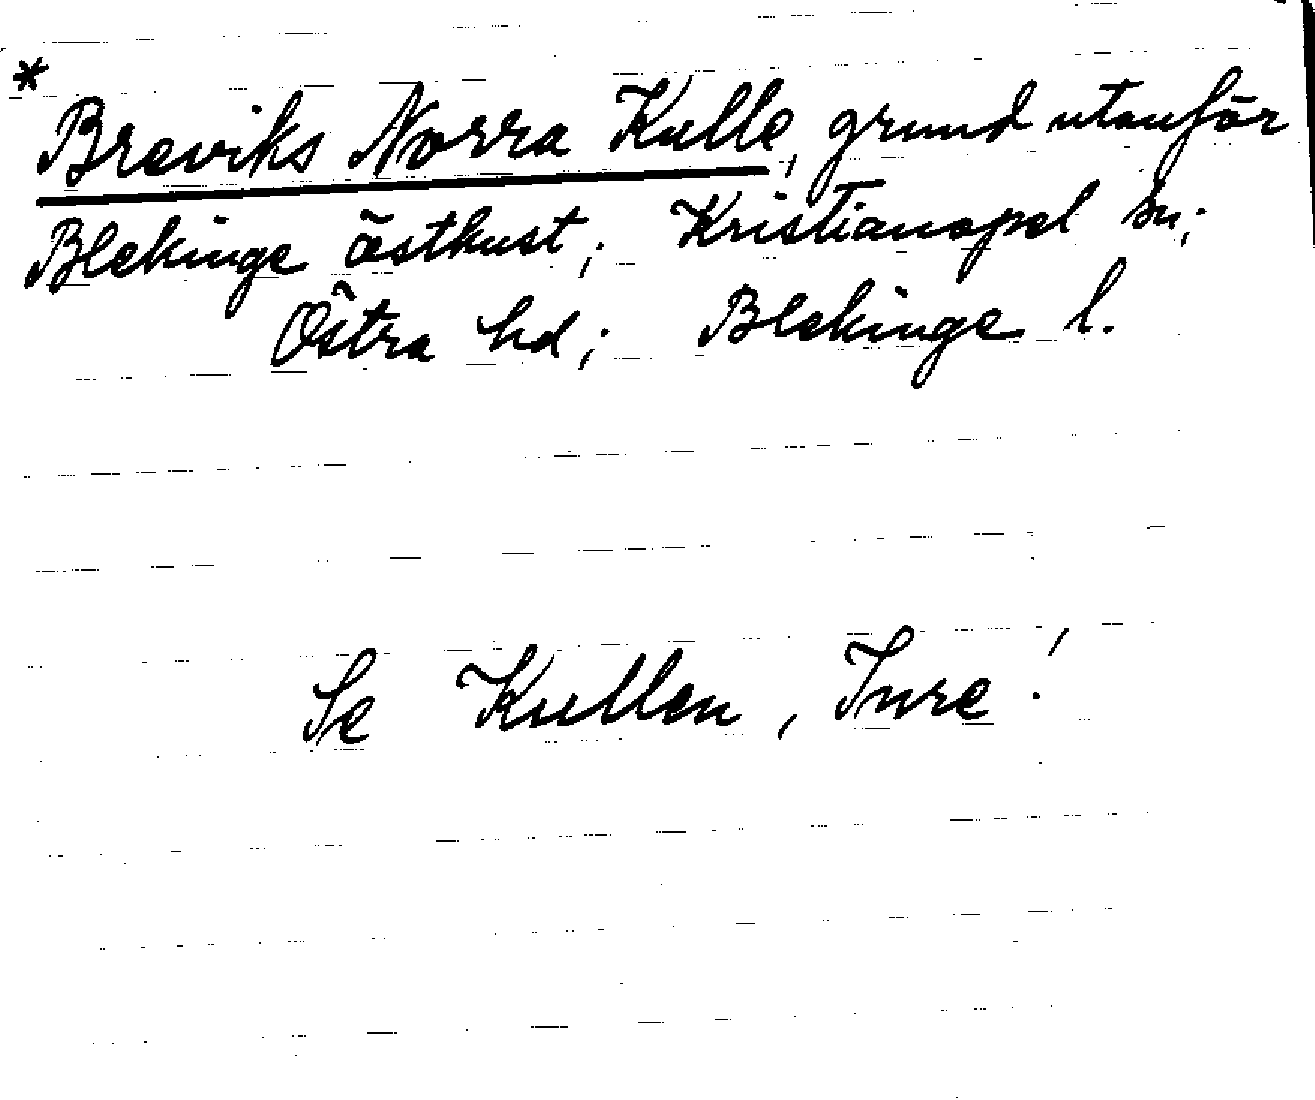 * Breviks Norra Kulle, grund utanför
Blekinge östkust; Kristianopel sn;
Östra hd; Blekinge l.
Se Kullen, Inre!